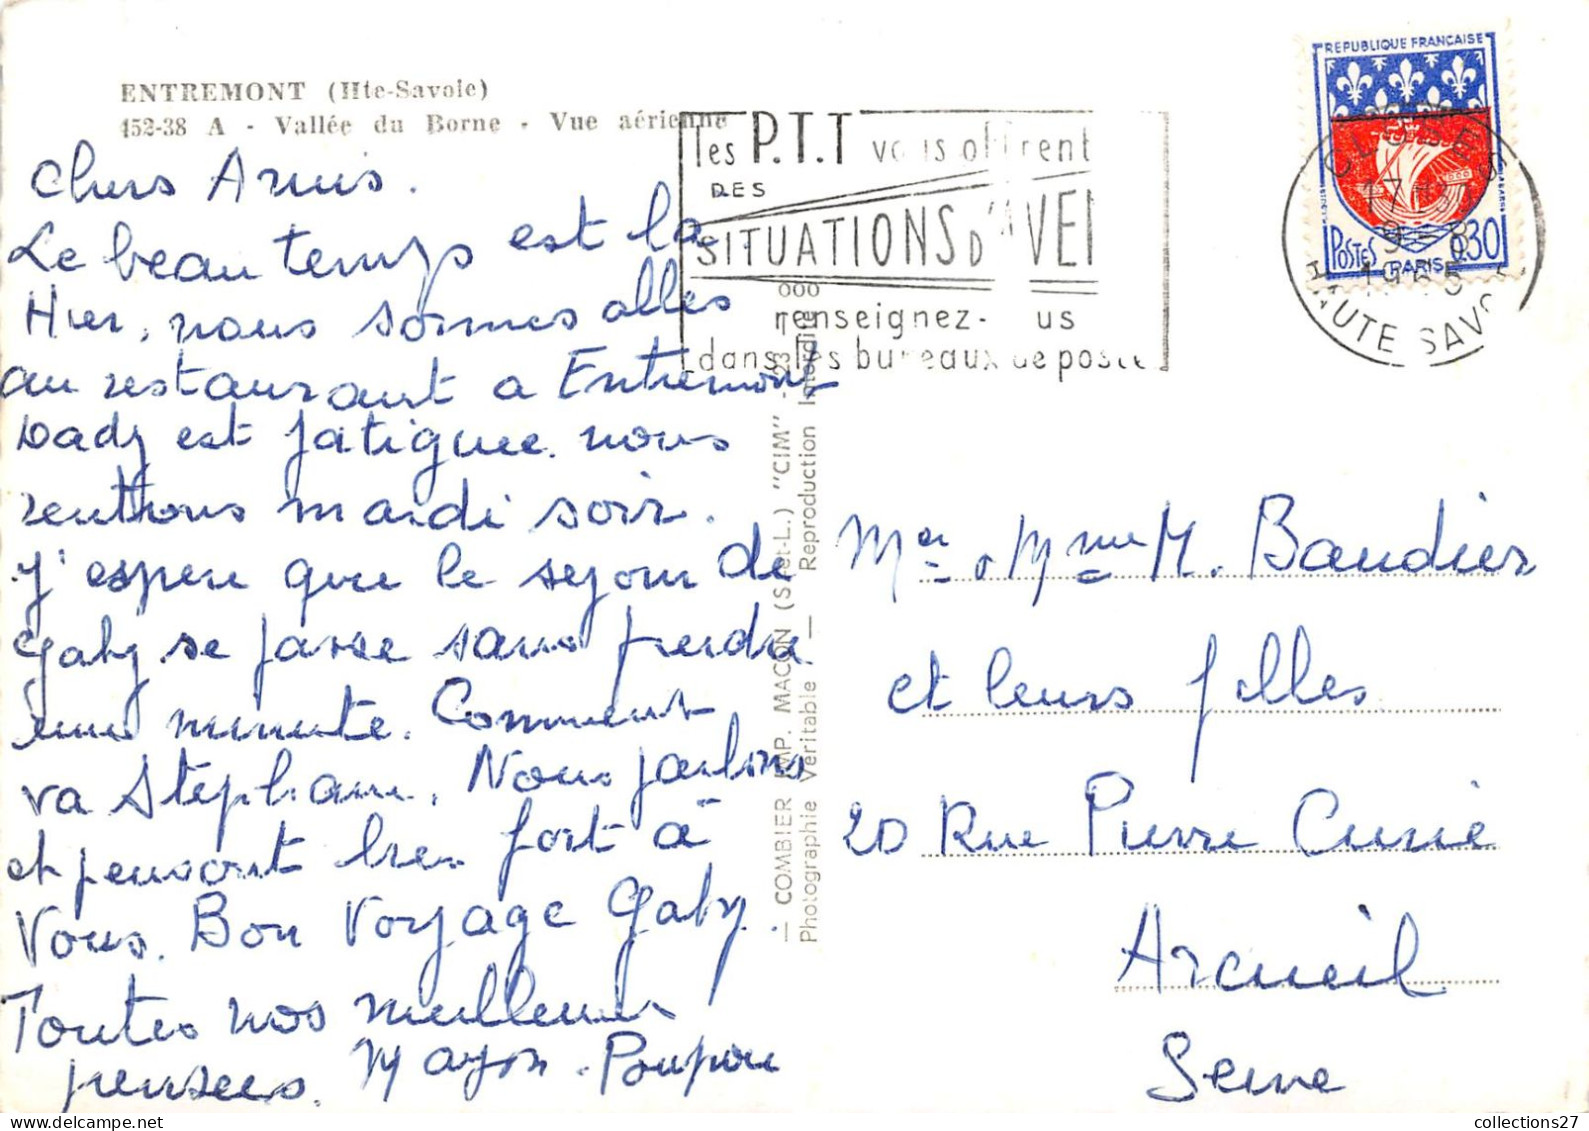 ENTREMONT (Hte-Savoie)
152-38 A - Vallée du Borne - Vue aérienne
Chers Amis.
Le beau temps est la
Hier, nous sommes allés
au restaurant a Entremont
Dady est fatiguee nous
rentrons mardi soir.
J'espere que le sejour de
Gaby se passe sans perdre
une minute. Comment
va Stephane. Nous parlons
et pensont tres fort à
Vous. Bon Voyage Gaby.
Toutes nos meilleures
pensees. Mayon. Poupou
les P.T.T vous offrent
DES
SITUATIONS D'AVE
renseignez- us
dans les bureaux de poste
REPUBLIQUE FRANÇAISE
POSTES 0.30
PARIS
CLUSES
17 H
9 - 8
1965
HAUTE SAVOIE
— COMBIER IMP. MACON (S.-et-L.) "CIM" -
Photographie Véritable — Reproduction Interdite
Mer & Mme M. Baudier
et leurs filles
20 Rue Pierre Curie
Arcueil
Seine
collections27